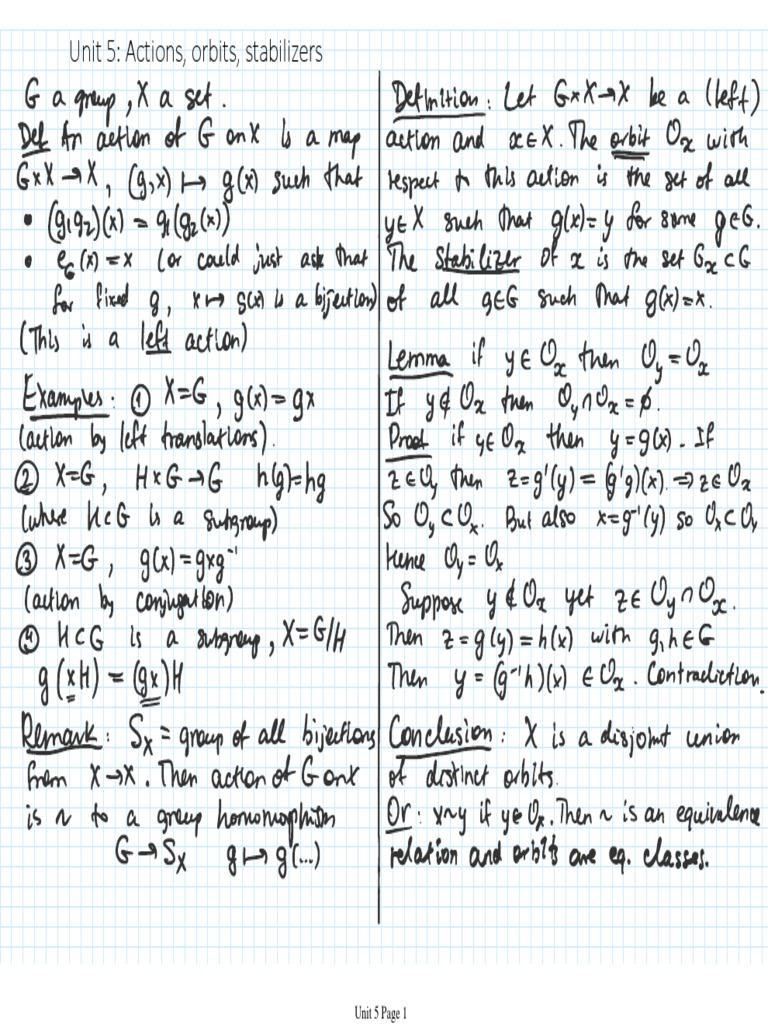 Unit 5: Actions, orbits, stabilizers
G a group, X a set.
Def An action of G on X is a map
G×X → X, (g,x) ↦ g(x) such that
• (g₁g₂)(x) = g₁(g₂(x))
• e_G(x) = x (or could just ask that
for fixed g, x ↦ g(x) is a bijection)
(This is a left action)
Examples: ① X=G, g(x) = gx
(action by left translations).
② X=G, H×G → G h(g)=hg
(where H⊂G is a subgroup)
③ X=G, g(x) = gxg⁻¹
(action by conjugation)
④ H⊂G is a subgroup, X=G/H
g(xH) = (gx)H
Remark: S_X = group of all bijections
from X→X. Then action of G on X
is ~ to a group homomorphism
G → S_X g ↦ g(...)
Definition: Let G×X→X be a (left)
action and x∈X. The orbit O_x with
respect to this action is the set of all
y∈X such that g(x)=y for some g∈G.
The stabilizer of x is the set G_x⊂G
of all g∈G such that g(x)=x.
Lemma if y∈O_x then O_y=O_x
If y∉O_x then O_y∩O_x=∅.
Proof if y∈O_x then y=g(x). If
z∈O_y then z=g'(y) = (g'g)(x). ⇒ z∈O_x
So O_y⊂O_x. But also x=g⁻¹(y) so O_x⊂O_y
Hence O_y=O_x
Suppose y∉O_x yet z∈O_y∩O_x.
Then z=g(y)=h(x) with g,h∈G
Then y = (g⁻¹h)(x) ∈O_x. Contradiction.
Conclusion: X is a disjoint union
of distinct orbits.
Or: x~y if y∈O_x. Then ~ is an equivalence
relation and orbits are eq. classes.
Unit 5 Page 1